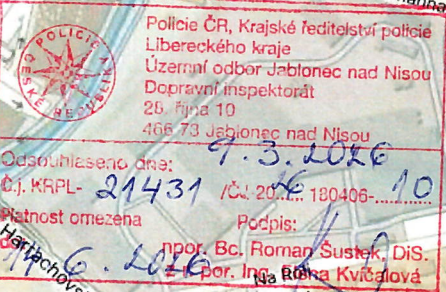 POLICIE
ČESKÉ REPUBLIKY
Policie ČR, Krajské ředitelství policie
Libereckého kraje
Územní odbor Jablonec nad Nisou
Dopravní inspektorát
28. října 10
466 73 Jablonec nad Nisou
Odsouhlaseno dne: 9. 3. 2026
Č.j. KRPL- 21431 /ČJ-2026 180406-10
Platnost omezena Podpis:
do 6. 2026 npor. Bc. Roman Šustek, DiS.
por. Ing. Kvíčalová
Na